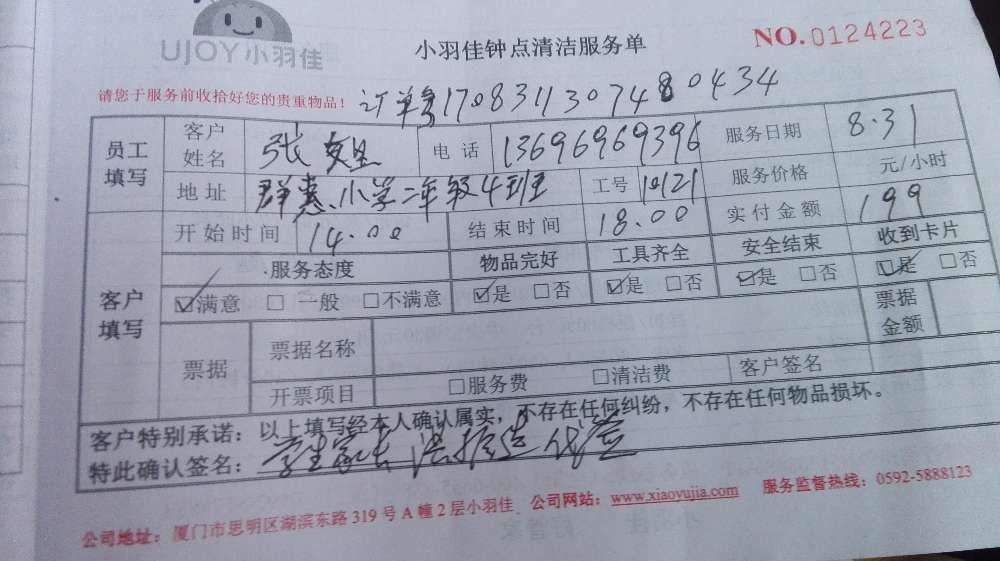 UJOY小羽佳
小羽佳钟点清洁服务单
NO.0124223
请您于服务前收拾好您的贵重物品！
订单号1708311307480434
员工填写 客户姓名 张 电话 13696969396 服务日期 8.31
地址 群惠小学二年级4班 工号 10121 服务价格 元/小时
客户填写 开始时间 14.00 结束时间 18.00 实付金额 199
服务态度 物品完好 工具齐全 安全结束 收到卡片
☑满意 □一般 □不满意 ☑是 □否 ☑是 □否 ☑是 □否 ☑是 □否
票据 票据名称 票据金额
开票项目 □服务费 □清洁费 客户签名
客户特别承诺：以上填写经本人确认属实，不存在任何纠纷，不存在任何物品损坏。
特此确认签名：学生家长
公司地址：厦门市思明区湖滨东路319号A幢2层小羽佳 公司网站：www.xiaoyujia.com 服务监督热线：0592-5888123